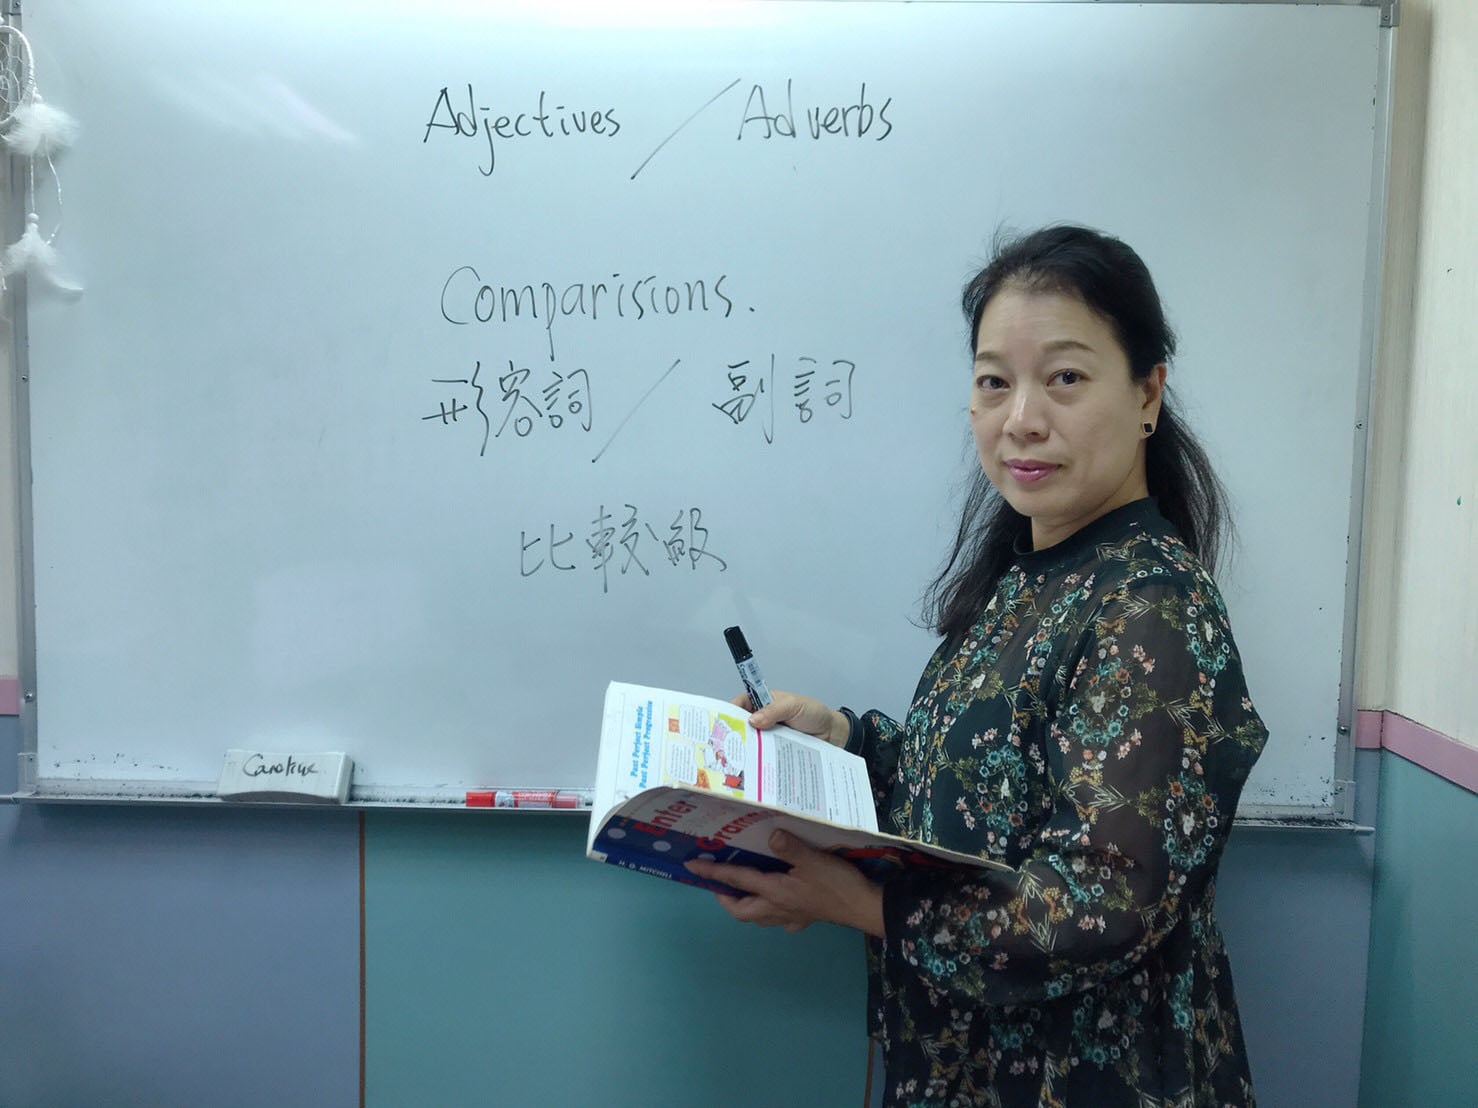 Adjectives / Adverbs
Comparisions.
形容詞 / 副詞
比較級
Caroline
Past Perfect Simple
Past Perfect Progressive
Enter
Grammar